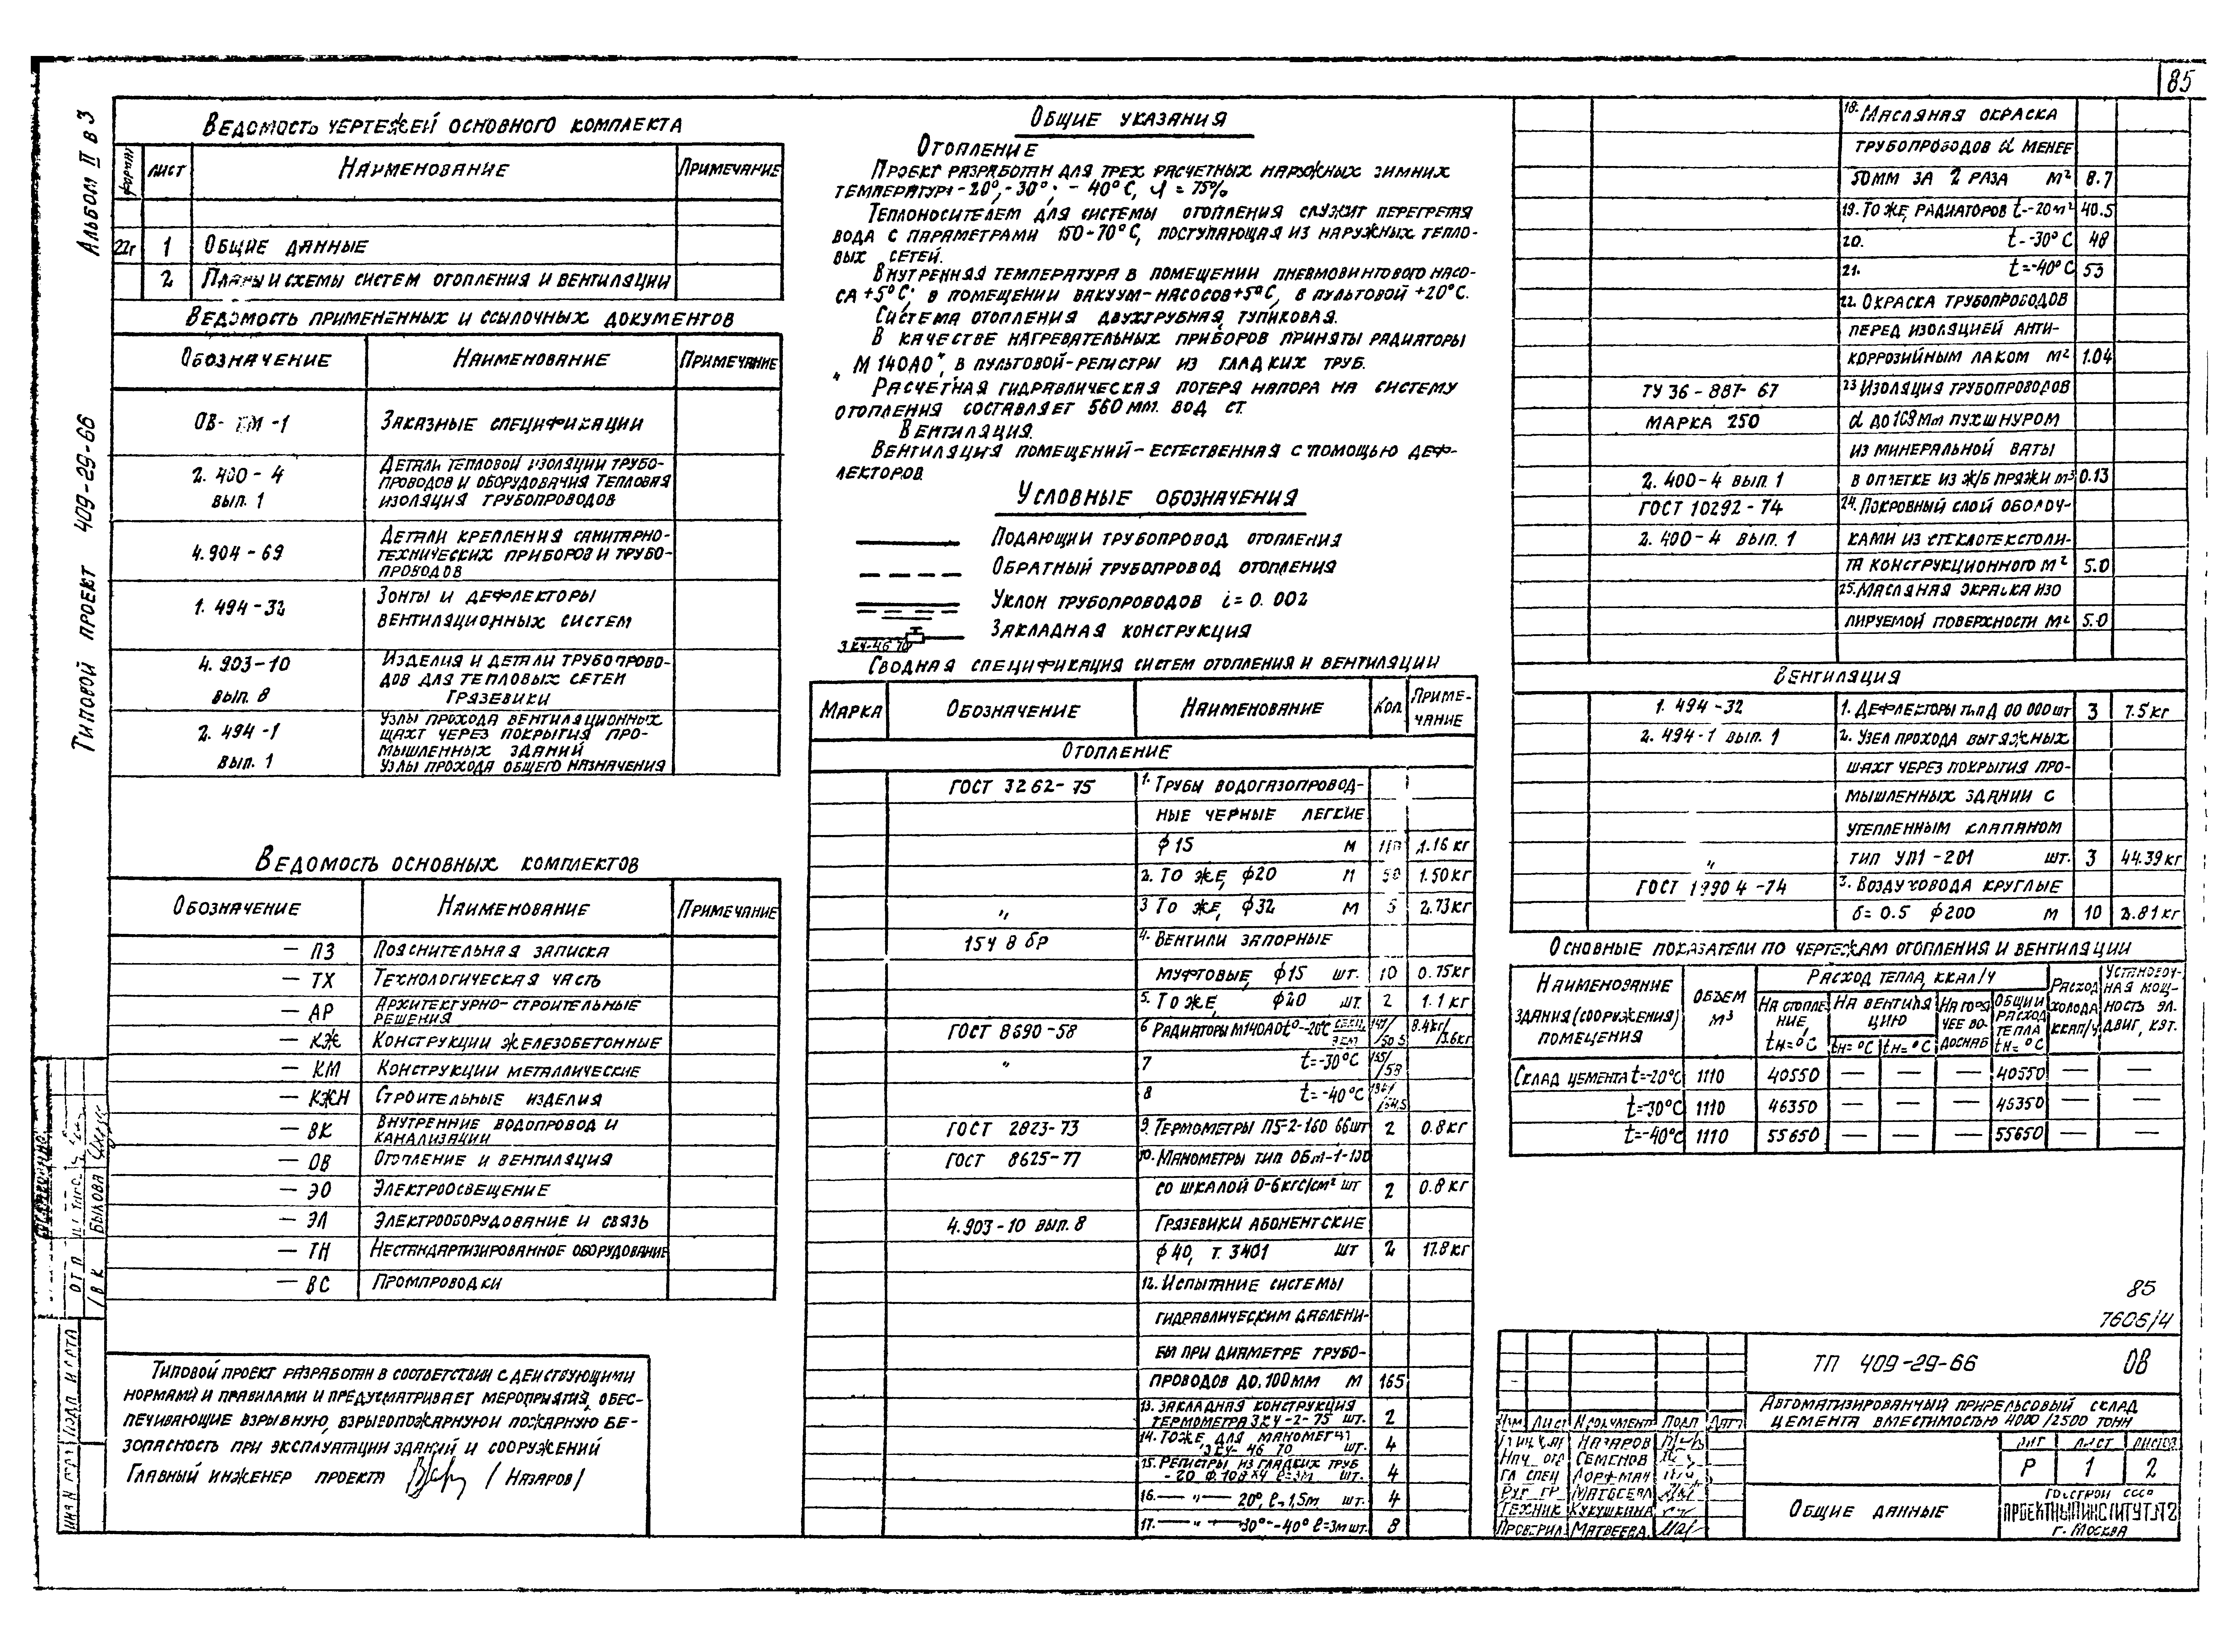 85
Альбом II в 3
Типовой проект 409-29-66
Ведомость чертежей основного комплекта
Формат
Лист
Наименование
Примечание
22г 1 Общие данные
2 Планы и схемы систем отопления и вентиляции
Ведомость примененных и ссылочных документов
Обозначение Наименование Примечание
ОВ- -1 Заказные спецификации
2.400-4 вып. 1
Детали тепловой изоляции трубо-
проводов и оборудования тепловая
изоляция трубопроводов
4.904-69
Детали крепления санитарно-
технических приборов и трубо-
проводов
1.494-32
Зонты и дефлекторы
вентиляционных систем
4.903-10 вып. 8
Изделия и детали трубопрово-
дов для тепловых сетей
Грязевики
2.494-1 вып. 1
Узлы прохода вентиляционных
шахт через покрытия про-
мышленных зданий
Узлы прохода общего назначения
Ведомость основных комплектов
Обозначение Наименование Примечание
— ПЗ Пояснительная записка
— ТХ Технологическая часть
— АР Архитектурно-строительные
решения
— КЖ Конструкции железобетонные
— КМ Конструкции металлические
— КЖН Строительные изделия
— ВК Внутренние водопровод и
канализации
— ОВ Отопление и вентиляция
— ЭО Электроосвещение
— ЭЛ Электрооборудование и связь
— ТН Нестандартизированное оборудование
— ВС Промпроводки
Типовой проект разработан в соответствии с действующими
нормами и правилами и предусматривает мероприятия, обес-
печивающие взрывную, взрывопожарную и пожарную бе-
зопасность при эксплуатации зданий и сооружений
Главный инженер проекта (Назаров)
Общие указания
Отопление
Проект разработан для трех расчетных наружных зимних
температур: -20°, -30°; -40°С, φ = 75%
Теплоносителем для системы отопления служит перегретая
вода с параметрами 150-70°С, поступающая из наружных тепло-
вых сетей.
Внутренняя температура в помещении пневмовинтового насо-
са +5°С; в помещении вакуум-насосов +5°С, в пультовой +20°С.
Система отопления двухтрубная, тупиковая.
В качестве нагревательных приборов приняты радиаторы
„М140АО", в пультовой-регистры из гладких труб.
Расчетная гидравлическая потеря напора на систему
отопления составляет 560 мм. вод ст.
Вентиляция.
Вентиляция помещений-естественная с помощью деф-
лекторов.
Условные обозначения
Подающий трубопровод отопления
Обратный трубопровод отопления
Уклон трубопроводов i=0.002
ЗКЧ-46 70 Закладная конструкция
Сводная спецификация систем отопления и вентиляции
Марка Обозначение Наименование Кол. Приме-
чание
Отопление
ГОСТ 3262-75 1. Трубы водогазопровод-
ные черные легкие
ф15 м 1.16 кг
2. То же, ф20 м 50 1.50 кг
„ 3 То же, ф32 м 5 2.73 кг
15ч 8 бр 4. Вентили запорные
муфтовые, ф15 шт. 10 0.75 кг
5. То же, ф20 шт 2 1.1 кг
ГОСТ 8690-58 6 Радиаторы М140АО t°-20°С секц. экм 8.4 кг/
„ 7 t=-30°С
8 t=-40°С
ГОСТ 2823-73 9. Термометры П5-2-160 66 шт 2 0.8 кг
ГОСТ 8625-77 10. Манометры тип ОБм-1-100
со шкалой 0-6 кгс/см² шт 2 0.8 кг
4.903-10 вып. 8 Грязевики абонентские
ф40, т. 3401 шт 2 17.8 кг
12. Испытание системы
гидравлическим давлени-
ем при диаметре трубо-
проводов до 100мм м 165
13. Закладная конструкция
термометра ЗКЧ-2-75 шт. 2
14. То же для манометра
ЗКЧ-46 70 шт. 4
15. Регистры из гладких труб
-20 ф108×4 l=3м шт. 4
16. — „ — 20°, l=1,5м шт. 4
17. — „ — -30°- -40° l=3м шт. 8
18. Масляная окраска
трубопроводов d менее
50мм за 2 раза м² 8.7
19. То же, радиаторов t--20 м² 40.5
20. t--30°С 48
21. t=-40°С 53
22. Окраска трубопроводов
перед изоляцией анти-
коррозийным лаком м² 1.04
ТУ 36-887-67 23 Изоляция трубопроводов
марка 250 d до 109мм пухшнуром
из минеральной ваты
2.400-4 вып. 1 в оплетке из х/б пряжи м³ 0.13
ГОСТ 10292-74 24. Покровный слой оболоч-
2.400-4 вып. 1 ками из стеклотекстоли-
та конструкционного м² 5.0
25. Масляная окраска изо
лируемой поверхности м² 5.0
Вентиляция
1.494-32 1. Дефлекторы тип Д 00 000 шт 3 7.5 кг
2.494-1 вып. 1 2. Узел прохода вытяжных
шахт через покрытия про-
мышленных здании с
утепленным клапаном
„ тип УП1-201 шт. 3 44.39 кг
ГОСТ 19904-74 3. Воздуховода круглые
б=0.5 ф200 м 10 2.81 кг
Основные показатели по чертежам отопления и вентиляции
Наименование
здания (сооружения)
помещения
Объем
м³
Расход тепла, ккал/ч
На отопле-
ние,
tн=°С
На вентиля
цию
tн=°С tн=°С
На горя
чее во-
доснаб
Общий
расход
тепла
tн=°С
Расход
холода
ккал/ч
Установоч-
ная мощ-
ность эл.
двиг, квт.
Склад цемента t=-20°С 1110 40550 — — — 40550 — —
t=-30°С 1110 46350 — — — 46350 — —
t=-40°С 1110 55650 — — — 55650 — —
85
7606/4
ТП 409-29-66 ОВ
Автоматизированный прирельсовый склад
цемента вместимостью 4000/2500 тонн
Изм Лист N документ Подп Дата
Назаров
Нач. отд Семенов
Гл спец Дорфман
Рук гр Матвеева
Техник Кукушкина
Проверил Матвеева
Лит Лист Листов
Р 1 2
Общие данные
Госстрой СССР
Проектный институт №2
г. Москва
Быкова